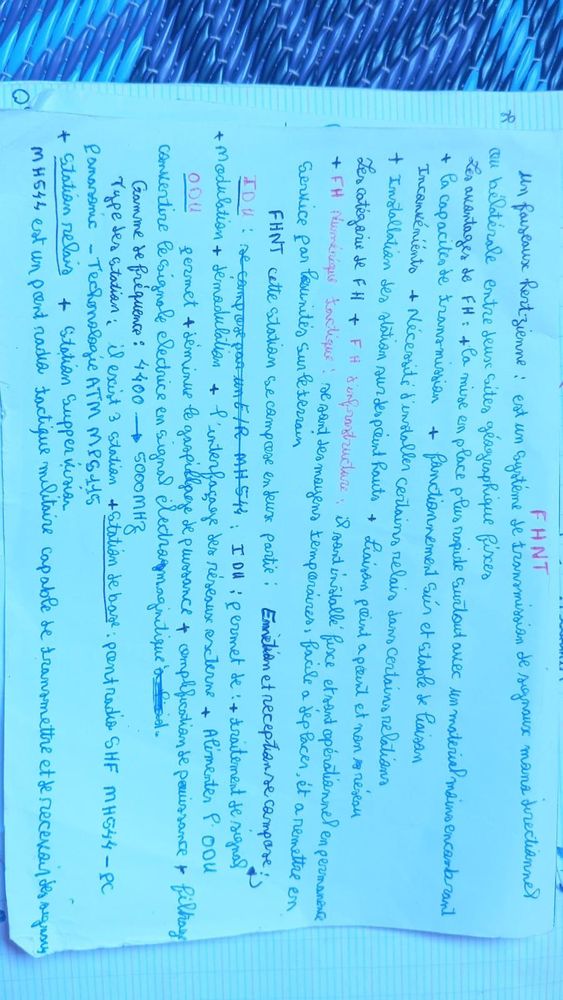 FHNT
Un faiseaux hertzienne : est un système de transmission de signaux mono directionnel
ou bilatérale entre deux sites géographique fixes
Les avantages de FH : + la mise en place plus rapide surtout avec un matérial moins encombrant
+ la capacités de transmission + fonctionnement sûr et stable de liaison
Inconvénients + Nécessité d'installer certains relais dans certains relations
+ Installation des station sur des point hauts + Liaison point a point et non réseau
Les catégorie de FH + FH d'infrastructure : il sont installé fixe et sont opérationnel en permanence
+ FH Numérique tactique : se sont des moyens temporaires, facile a déplacer, et a remettre en
service par l'unités sur le terrain
FHNT cette station se compose en deux partie : Emetion et reception se compose :
IDU : se compose par un E/R MH544 : IDU : permet de : + traitement de signal
+ Modulation + démodulation + l'interfaçage des réseaux externe + Alimenter l'ODU
ODU permet + diminue le gaspillage de puissance + amplification de puissance + filtrage
convertire le signale electrice en signal électromagnitique
Gamme de fréquence : 4400 → 5000MHz
Type des station : il exist 3 station + Station de base : pont radio SHF MH544 - PC
Panasonic - Techonologie ATM MPS415
+ Station relais + Station Suppervision
MH544 est un pont radio tactique militaire capable de transmettre et de recevoir des signaux